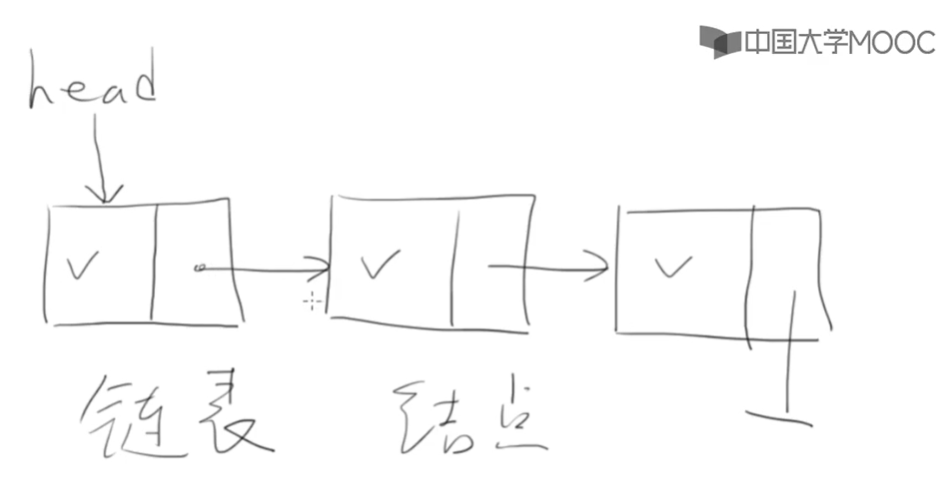 中国大学MOOC
head
✓ ✓ ✓
链表 结点